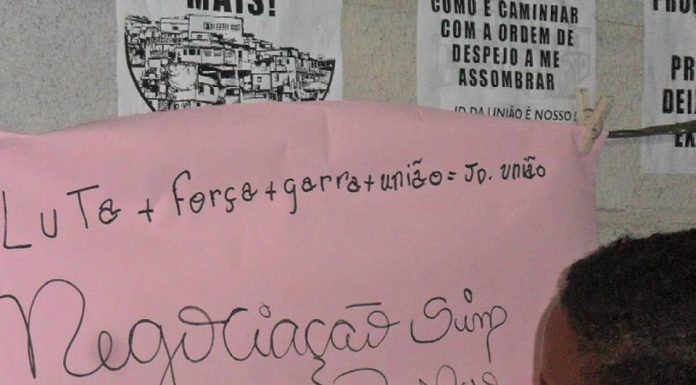 MAIS!
COMO É CAMINHAR
COM A ORDEM DE
DESPEJO A ME
ASSOMBRAR
JD DA UNIÃO É NOSSO
PR
DEI
EX
LuTa + força + garra + união = JD. união
Negociação Sim